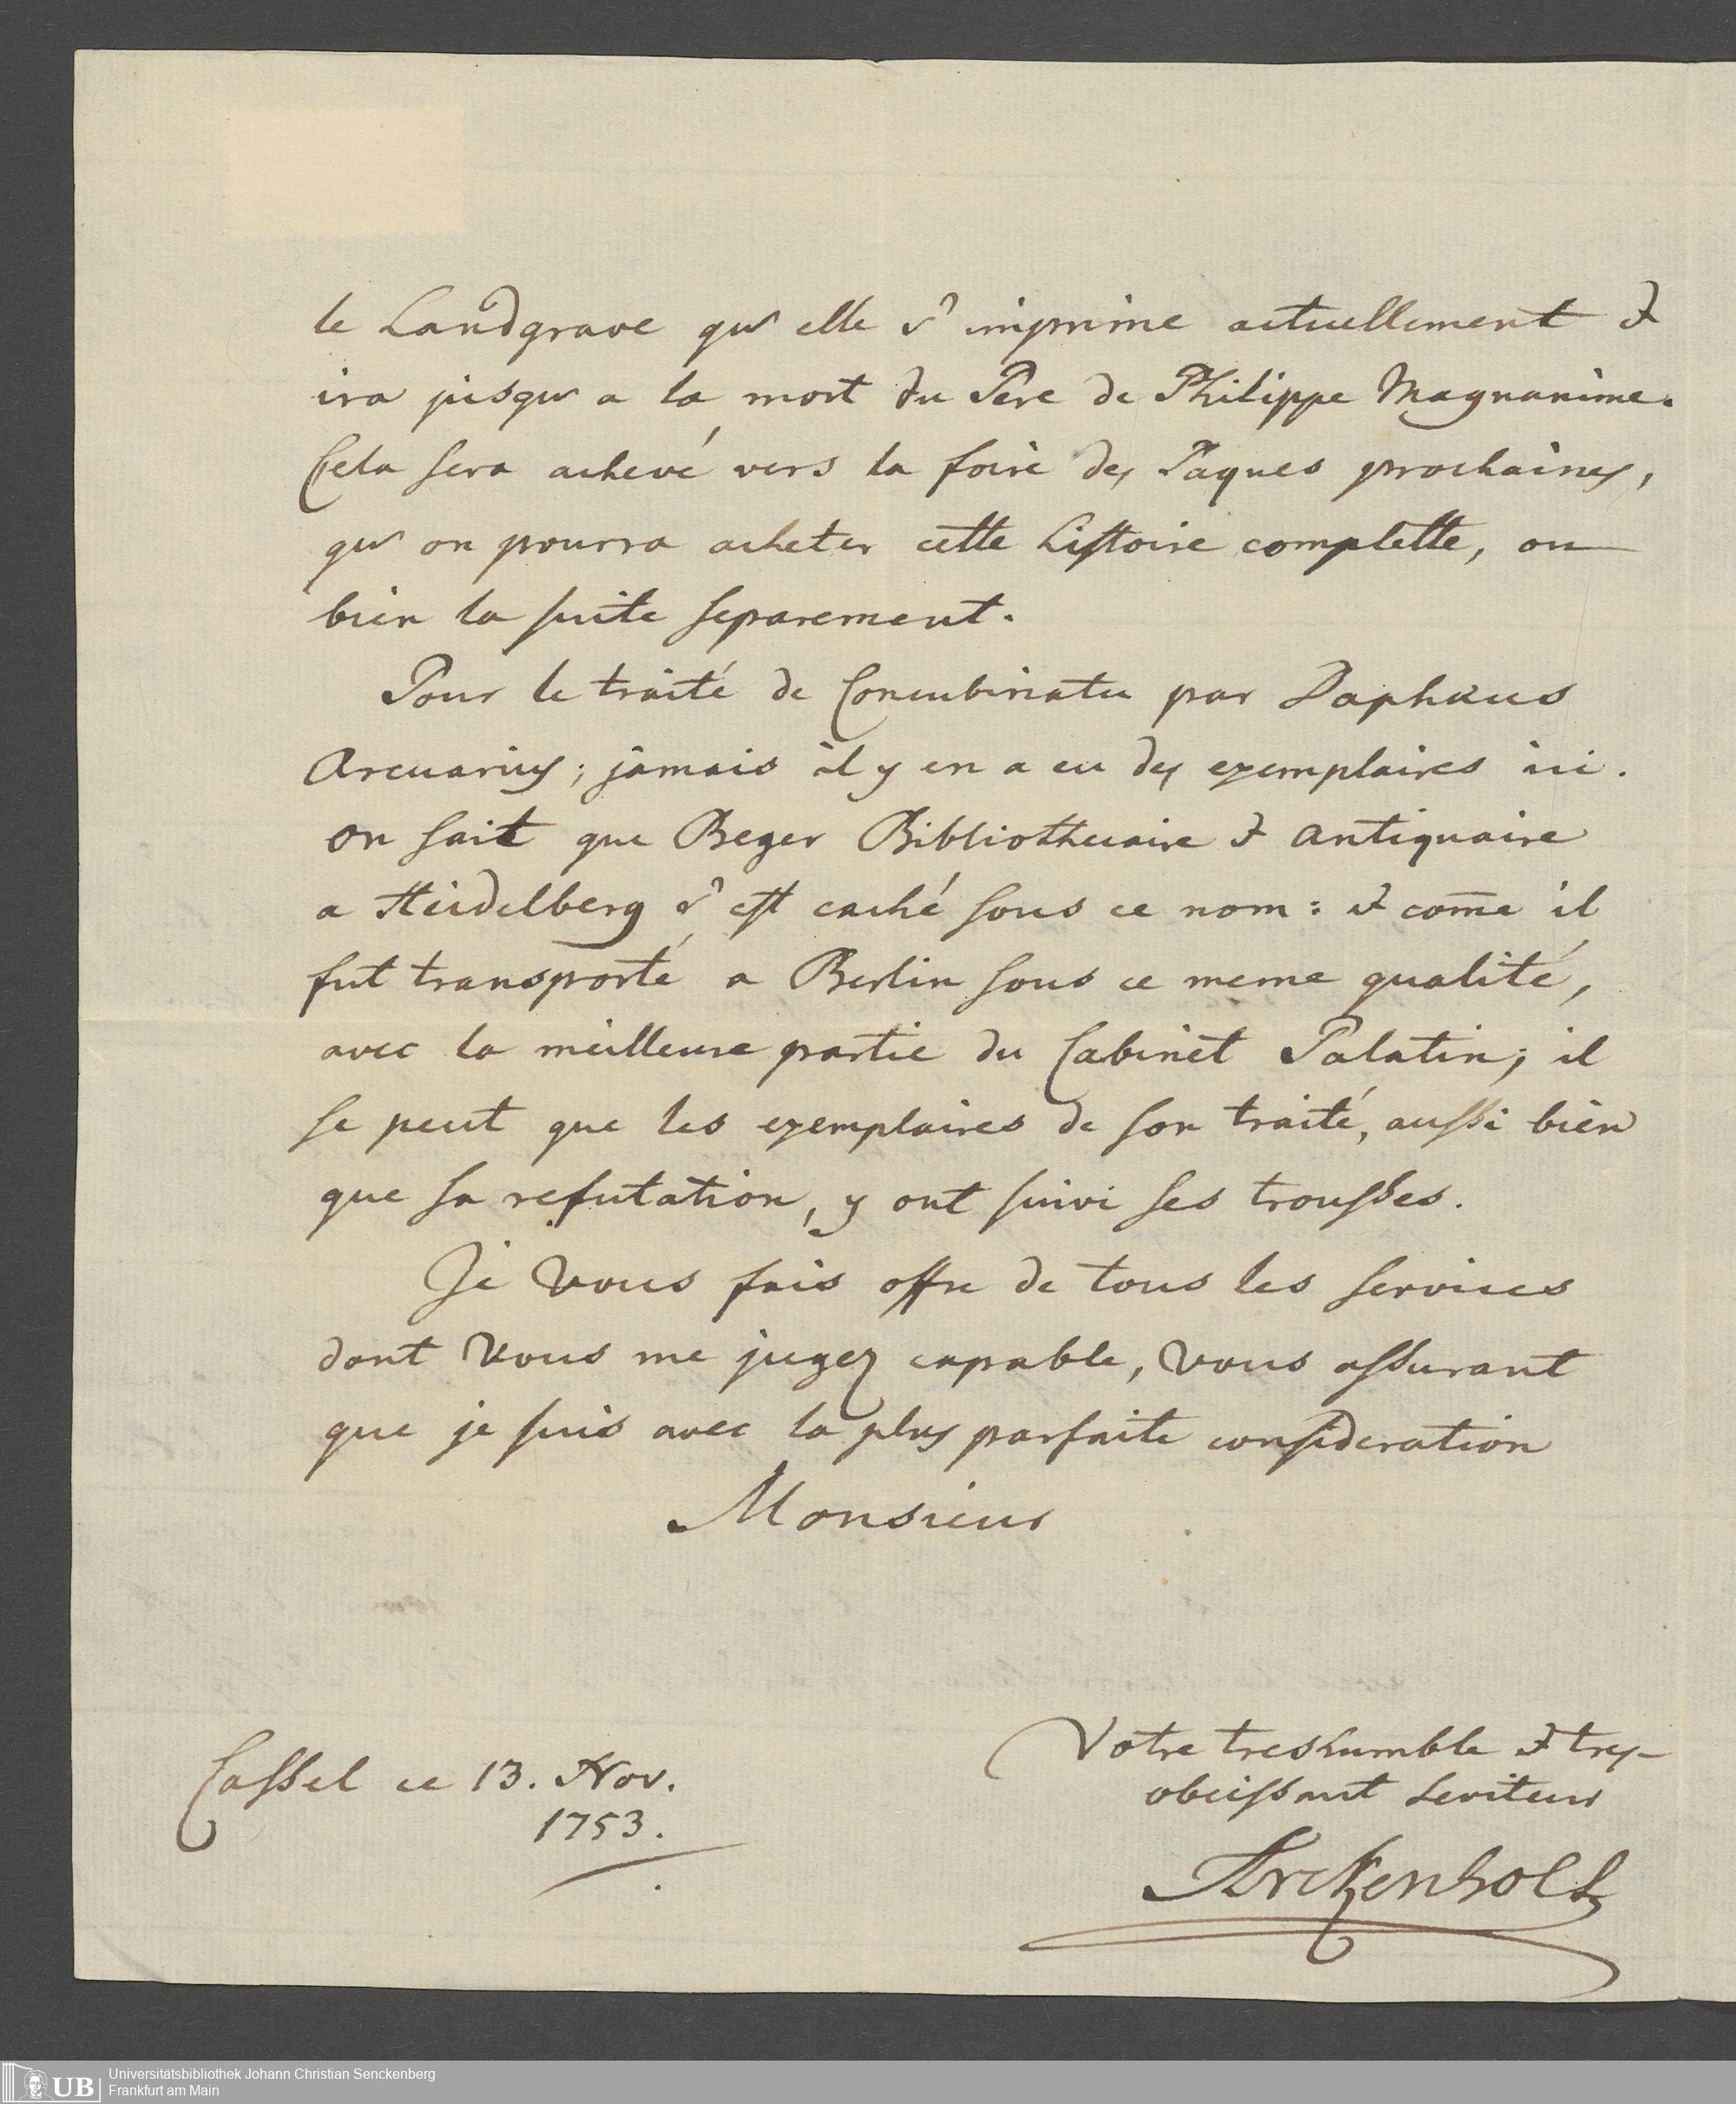 le Landgrave qu'elle s'imprime actuellement &
ira jusqu'a la mort du Pere de Philippe Magnanime.
Cela sera achevé vers la foire des Paques prochaines,
qu'on pourra acheter cette histoire complette, ou
bien la suite separement.
Pour le traité de Concubinatu par Daphæus
Arcuarius; jamais il y en a eu des exemplaires ici.
on sait que Beger Bibliothecaire & antiquaire
a Heidelberg s'est caché sous ce nom: & com̄e il
fut transporté a Berlin sous ce meme qualité,
avec la meilleure partie du Cabinet Palatin; il
se peut que les exemplaires de son traité, aussi bien
que sa refutation, y ont suivi ses trousses.
Je vous fais offre de tous les services
dont vous me jugez capable, vous assurant
que je suis avec la plus parfaite consideration
Monsieur
Votre treshumble & tres-
obeissant seviteur
Cassel ce 13. Nov.
1753.
Arckenholtz
UB
Universitätsbibliothek Johann Christian Senckenberg
Frankfurt am Main